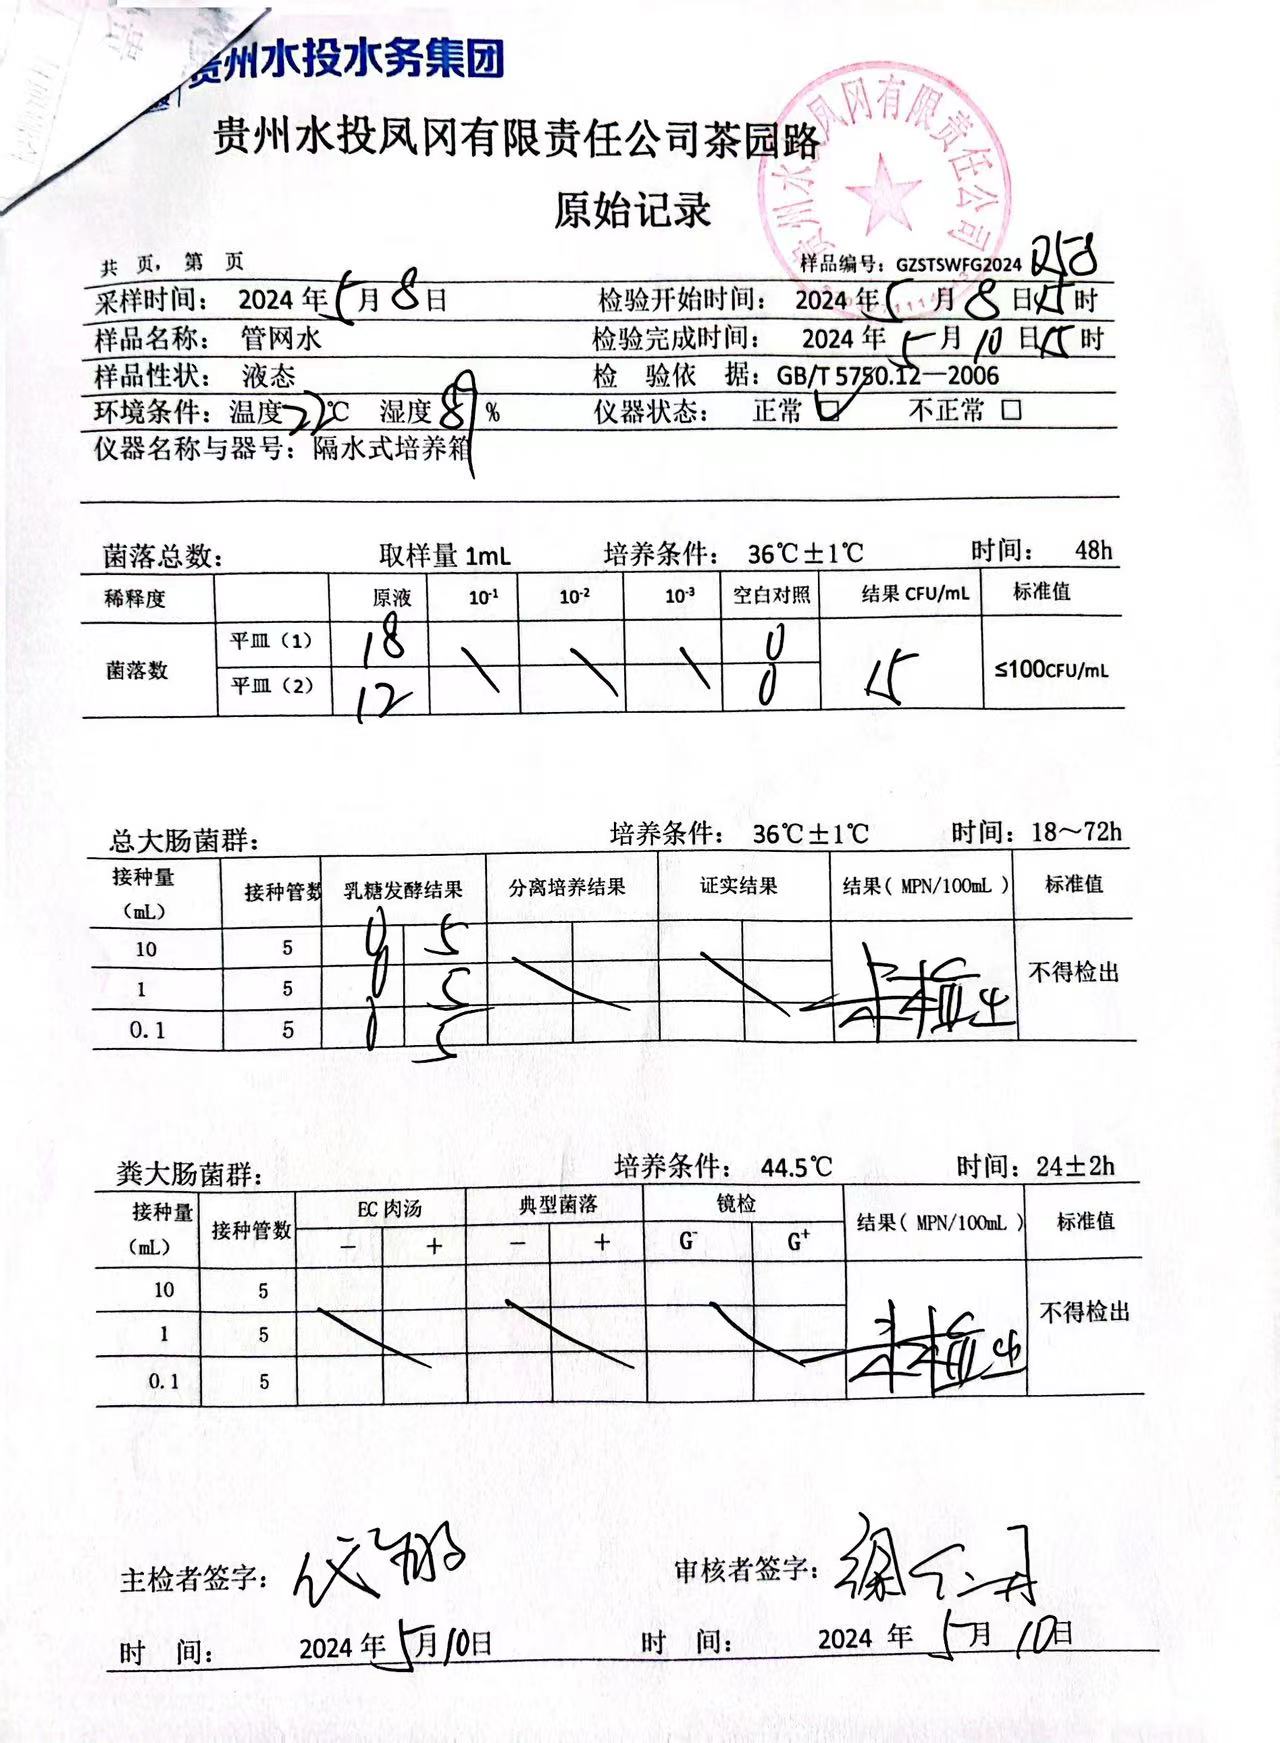 贵州水投水务集团
贵州水投凤冈有限责任公司茶园路
原始记录
贵州水投凤冈有限责任公司
共 页，第 页 样品编号：GZSTSWFG2024 0258
采样时间： 2024年5月8日 检验开始时间： 2024年5月8日15时
样品名称： 管网水 检验完成时间： 2024年5月10日15时
样品性状： 液态 检 验依 据：GB/T 5750.12—2006
环境条件：温度22℃ 湿度89% 仪器状态： 正常 ☑ 不正常 □
仪器名称与器号：隔水式培养箱
菌落总数： 取样量 1mL 培养条件： 36℃±1℃ 时间： 48h
稀释度 原液 10-1 10-2 10-3 空白对照 结果 CFU/mL 标准值
菌落数 平皿（1） 18 \ \ \ 0 15 ≤100CFU/mL
平皿（2） 12 0
总大肠菌群： 培养条件： 36℃±1℃ 时间：18～72h
接种量（mL） 接种管数 乳糖发酵结果 分离培养结果 证实结果 结果（ MPN/100mL ） 标准值
10 5 0 5 未检出 不得检出
1 5 0 5
0.1 5 0 5
粪大肠菌群： 培养条件： 44.5℃ 时间：24±2h
接种量（mL） 接种管数 EC 肉汤 典型菌落 镜检 结果（ MPN/100mL ） 标准值
－ ＋ － ＋ G- G+
10 5 未检出 不得检出
1 5
0.1 5
主检者签字： 审核者签字：
时 间： 2024 年5月10日 时 间： 2024 年 5月 10日